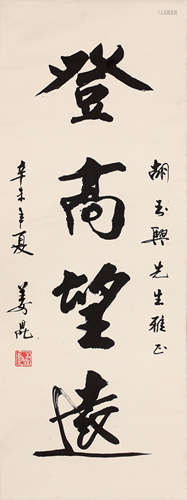 胡玉兴先生雅正
登高望遠
辛未年夏 姜昆